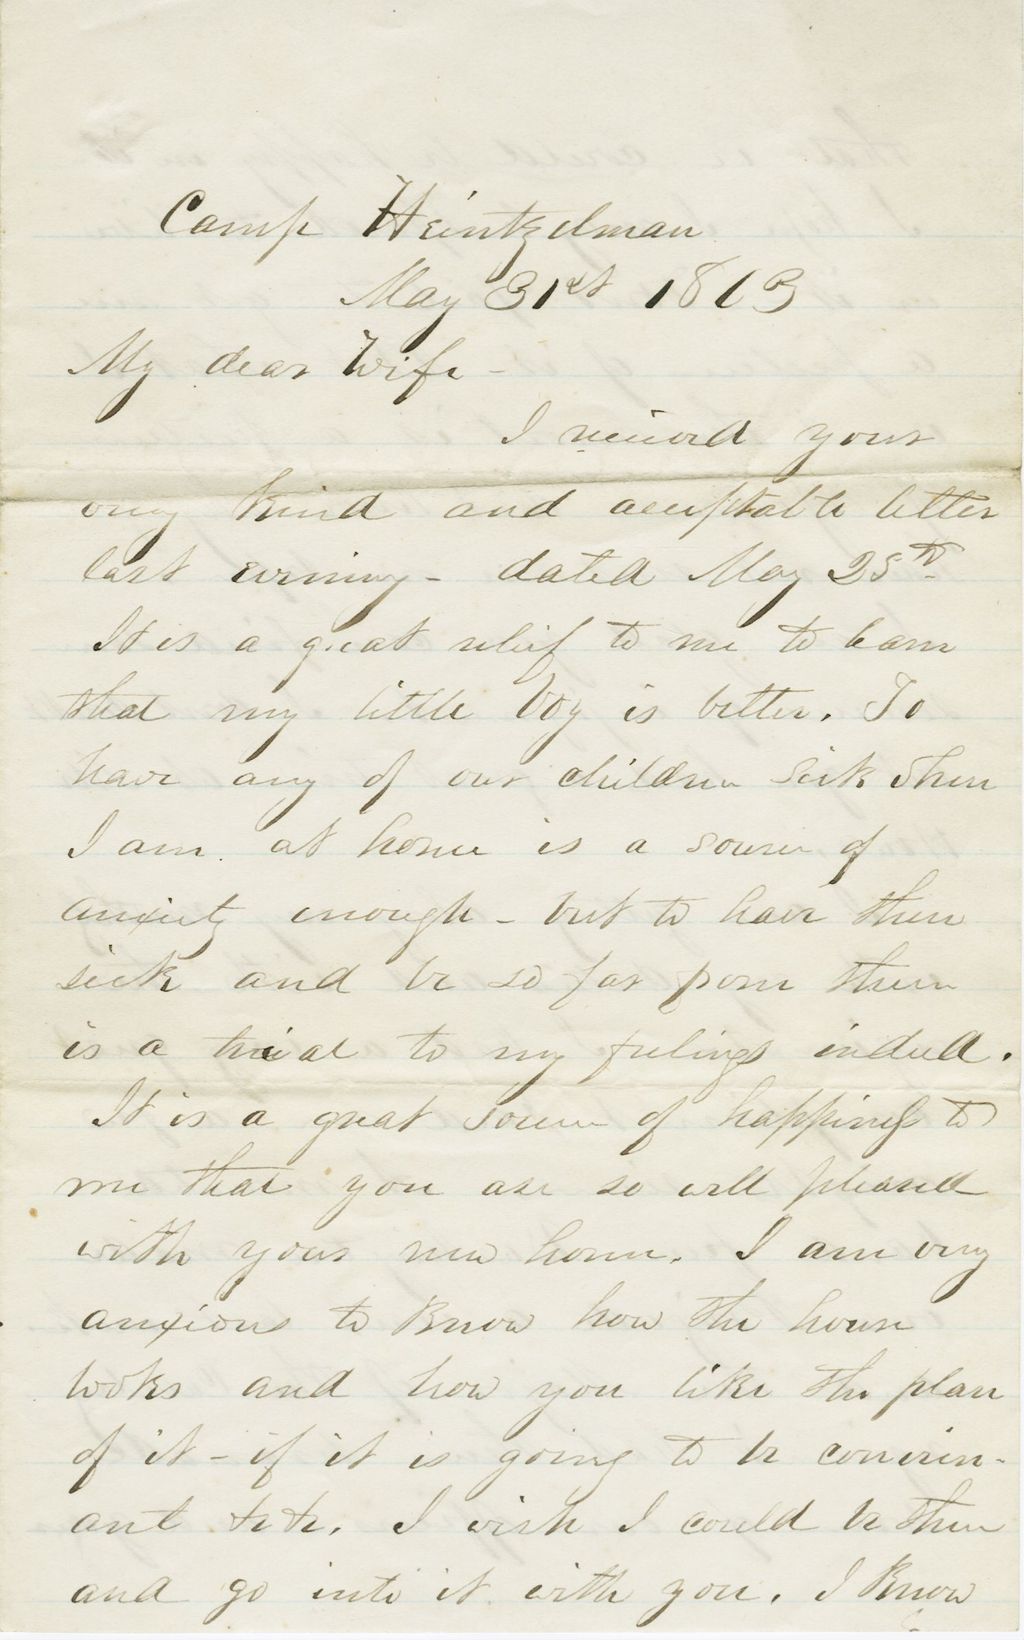 Camp Heintzelman
May 31st 1863
My dear Wife -
I received your
very kind and acceptable letter
last evening - dated May 25th
It is a great relief to me to learn
that my little boy is better. To
have any of our children sick when
I am at home is a source of
anxiety enough - but to have them
sick and be so far from them
is a trial to my feelings indeed.
It is a great source of happiness to
me that you are so well pleased
with your new home. I am very
anxious to know how the house
looks and how you like the plan
of it - if it is going to be convein-
ant &c &c. I wish I could be there
and go into it with you. I know